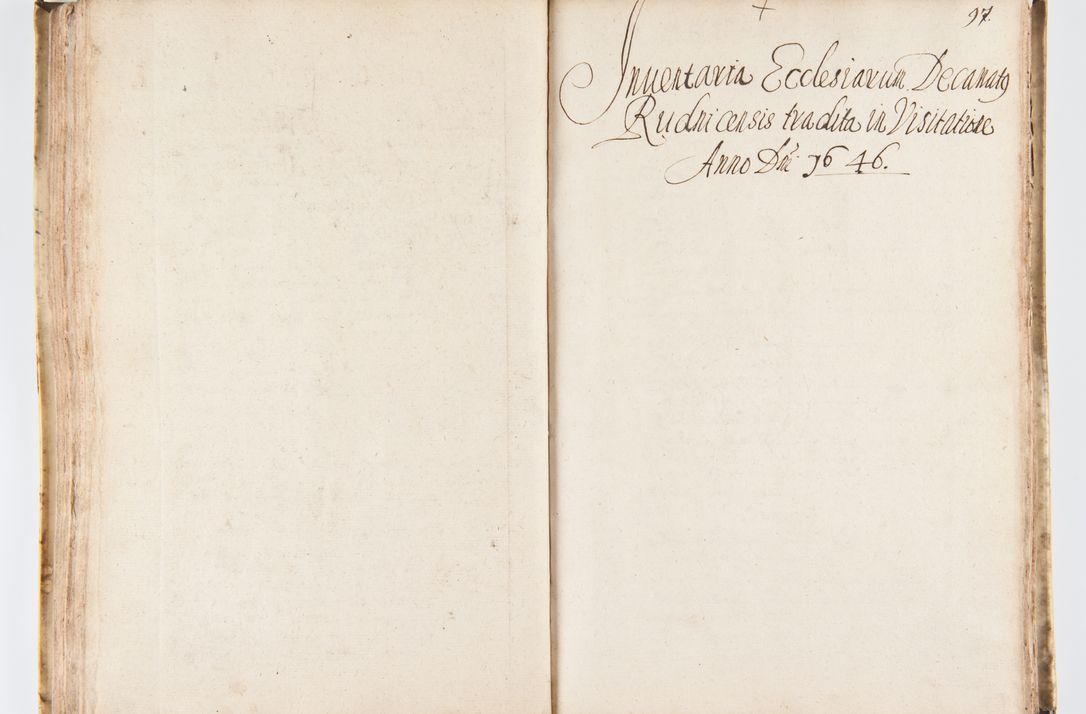 97.
Inuentaria Ecclesiarum Decanatꝰ
Rudnicensis tradita in Visitatione
Anno Dni 1646.